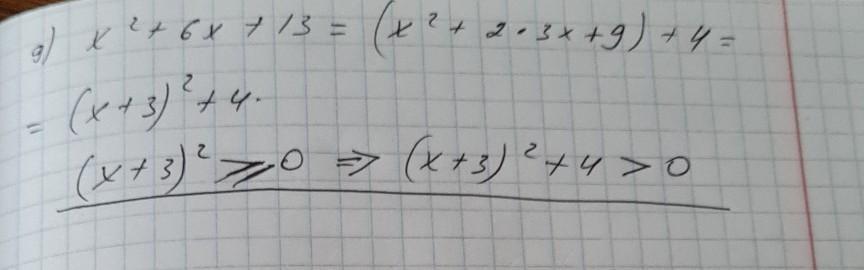 д) x² + 6x + 13 = (x² + 2·3x + 9) + 4 =
= (x+3)² + 4.
(x+3)² ⩾ 0 ⇒ (x+3)² + 4 > 0